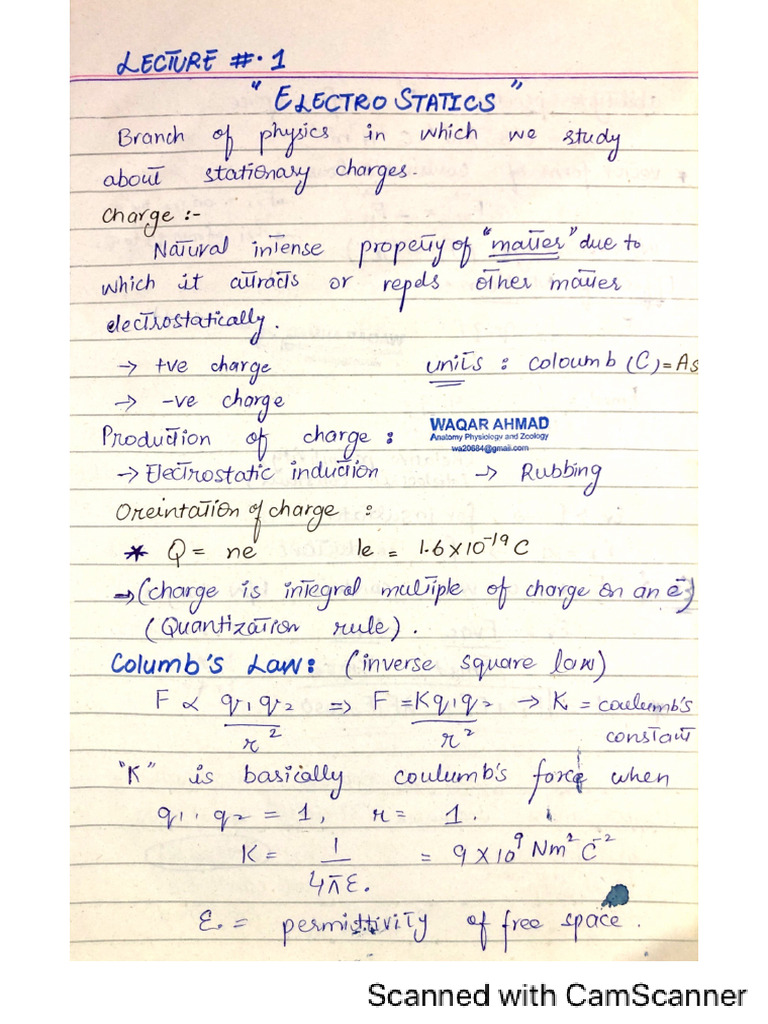 LECTURE #.1
"ELECTRO STATICS"
Branch of physics in which we study
about stationary charges.
Charge :-
Natural intense property of "matter" due to
which it attracts or repels other matter
electrostatically.
→ +ve charge units : coloumb (C) = As
→ -ve charge
Production of charge :
WAQAR AHMAD
Anatomy Physiology and Zoology
wa20684@gmail.com
→ Electrostatic induction → Rubbing
Oreintation of charge :
* Q = ne 1e = 1.6×10⁻¹⁹ C
→ (charge is integral multiple of charge on an e⁻)
(Quantization rule).
Columb's Law: (inverse square law)
F ∝ q₁q₂/r² ⇒ F = Kq₁q₂/r² → K = coulumb's
constant
"K" is basically coulumb's force when
q₁, q₂ = 1, r = 1.
K = 1/4πε₀ = 9×10⁹ Nm²C⁻²
ε₀ = permittivity of free space.
Scanned with CamScanner